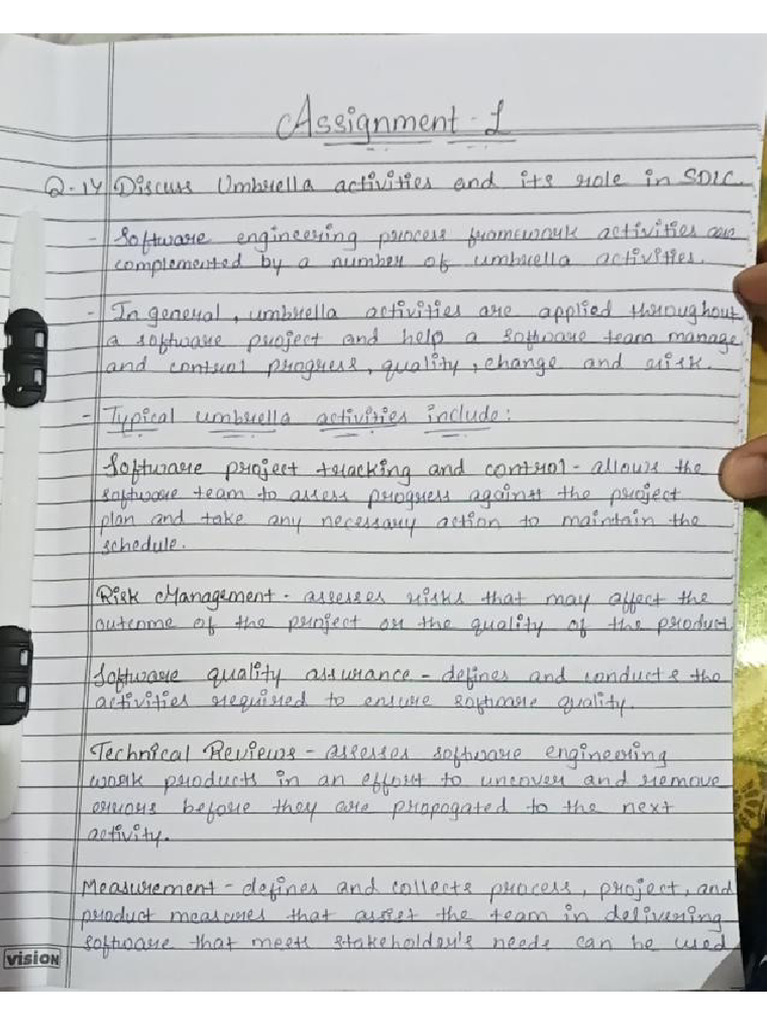 Assignment - 1
Q-1) Discuss Umbrella activities and its role in SDLC.
- Software engineering process framework activities are
complemented by a number of umbrella activities.
- In general, umbrella activities are applied throughout
a software project and help a software team manage
and control progress, quality, change and risk.
- Typical umbrella activities include:
Software project tracking and control - allows the
software team to assess progress against the project
plan and take any necessary action to maintain the
schedule.
Risk Management - assesses risks that may affect the
outcome of the project or the quality of the product
Software quality assurance - defines and conducts the
activities required to ensure software quality.
Technical Reviews - assesses software engineering
work products in an effort to uncover and remove
errors before they are propogated to the next
activity.
Measurement - defines and collects process, project, and
product measures that assist the team in delivering
software that meets stakeholder's needs can be used
vision